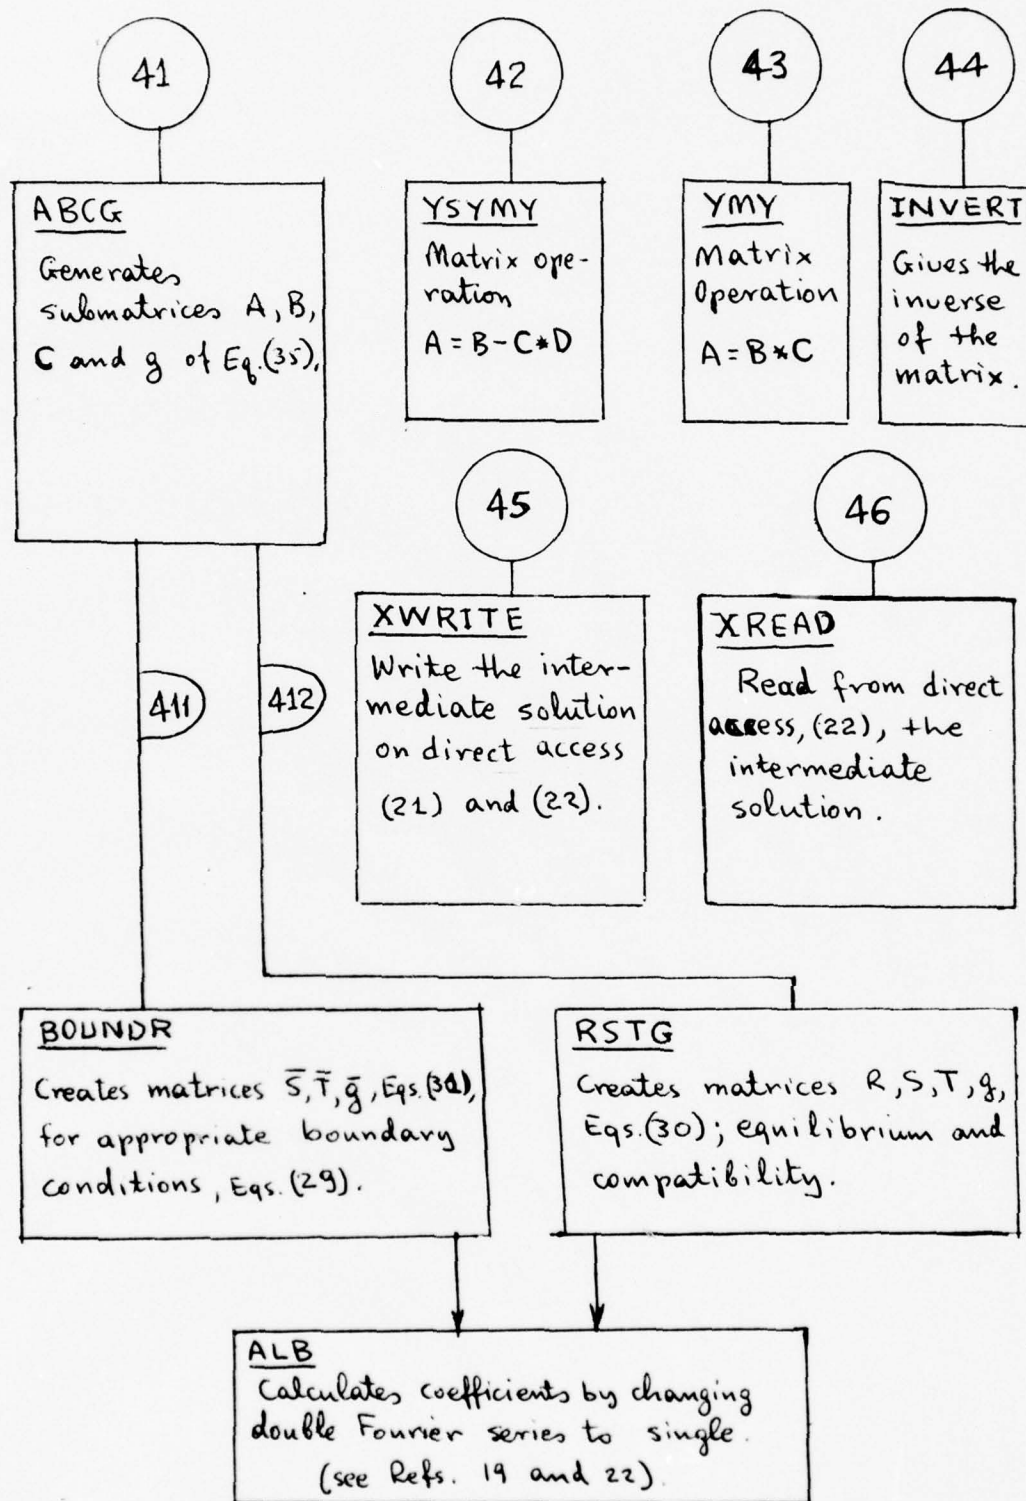 41
42
43
44
ABCG
Generates
submatrices A, B,
C and g of Eq.(35).
YSYMY
Matrix ope-
ration
A = B - C * D
YMY
Matrix
Operation
A = B * C
INVERT
Gives the
inverse
of the
matrix.
45
46
XWRITE
Write the inter-
mediate solution
on direct access
(21) and (22).
XREAD
Read from direct
access, (22), the
intermediate
solution.
411
412
BOUNDR
Creates matrices S̄, T̄, ḡ, Eqs.
for appropriate boundary
conditions, Eqs. (29).
RSTG
Creates matrices R, S, T, g,
Eqs.(30); equilibrium and
compatibility.
ALB
Calculates coefficients by changing
double Fourier series to single.
(see Refs. 19 and 22).